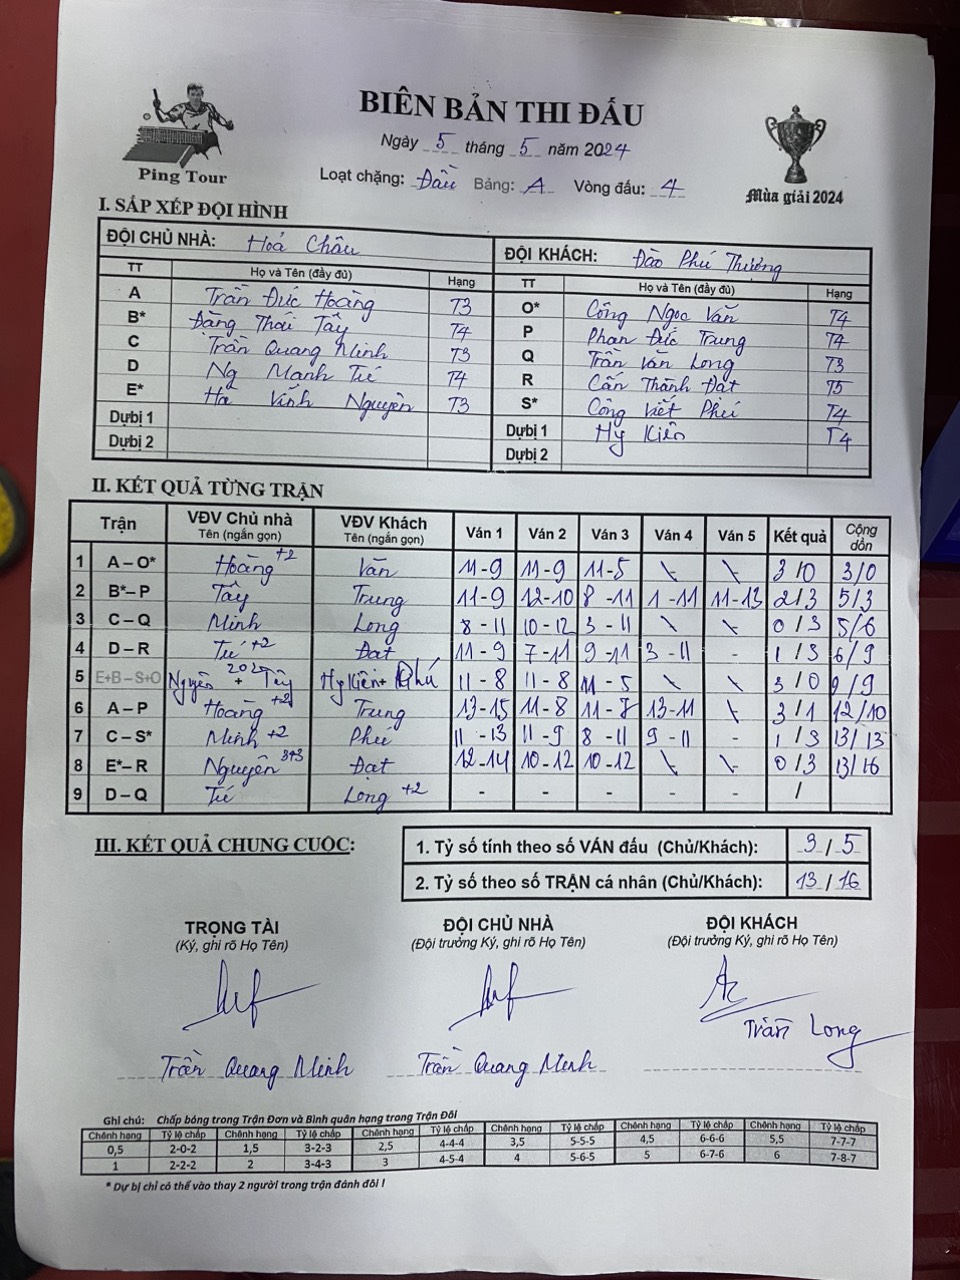 BIÊN BẢN THI ĐẤU
Ping Tour
Ngày 5 tháng 5 năm 2024
Loạt chặng: Đầu Bảng: A Vòng đấu: 4
Mùa giải 2024
I. SẮP XẾP ĐỘI HÌNH
ĐỘI CHỦ NHÀ: Hoả Châu ĐỘI KHÁCH: Đào Phú Thượng
TT Họ và Tên (đầy đủ) Hạng TT Họ và Tên (đầy đủ) Hạng
A Trần Đức Hoàng T3 O* Công Ngọc Văn T4
B* Đặng Thái Tây T4 P Phan Đức Trung T4
C Trần Quang Minh T3 Q Trần Văn Long T3
D Ng Mạnh Tú T4 R Cấn Thành Đạt T5
E* Hà Vĩnh Nguyên T3 S* Công Viết Phú T4
Dự bị 1 Dự bị 1 Hy Kiên T4
Dự bị 2 Dự bị 2
II. KẾT QUẢ TỪNG TRẬN
Trận VĐV Chủ nhà Tên (ngắn gọn) VĐV Khách Tên (ngắn gọn) Ván 1 Ván 2 Ván 3 Ván 4 Ván 5 Kết quả Cộng dồn
1 A – O* Hoàng +2 Văn 11-9 11-9 11-5 \ \ 3/0 3/0
2 B* – P Tây Trung 11-9 12-10 8-11 1-11 11-13 2/3 5/3
3 C – Q Minh Long 8-11 10-12 3-11 \ \ 0/3 5/6
4 D – R Tú +2 Đạt 11-9 7-11 9-11 3-11 - 1/3 6/9
5 E+B – S+O Nguyên 202 + Tây Hy Kiên + Phú 11-8 11-8 11-5 \ \ 3/0 9/9
6 A – P Hoàng +2 Trung 13-15 11-8 11-7 13-11 \ 3/1 12/10
7 C – S* Minh +2 Phú 11-13 11-9 8-11 9-11 - 1/3 13/13
8 E* – R Nguyên 3+3 Đạt 12-14 10-12 10-12 \ \ 0/3 13/16
9 D – Q Tú Long +2 - - - - - /
III. KẾT QUẢ CHUNG CUỘC:
1. Tỷ số tính theo số VÁN đấu (Chủ/Khách): 3/5
2. Tỷ số theo số TRẬN cá nhân (Chủ/Khách): 13/16
TRỌNG TÀI ĐỘI CHỦ NHÀ ĐỘI KHÁCH
(Ký, ghi rõ Họ Tên) (Đội trưởng Ký, ghi rõ Họ Tên) (Đội trưởng Ký, ghi rõ Họ Tên)
Trần Quang Minh Trần Quang Minh Trần Long
Ghi chú: Chấp bóng trong Trận Đơn và Bình quân hạng trong Trận Đôi
Chênh hạng Tỷ lệ chấp Chênh hạng Tỷ lệ chấp Chênh hạng Tỷ lệ chấp Chênh hạng Tỷ lệ chấp Chênh hạng Tỷ lệ chấp Chênh hạng Tỷ lệ chấp
0,5 2-0-2 1,5 3-2-3 2,5 4-4-4 3,5 5-5-5 4,5 6-6-6 5,5 7-7-7
1 2-2-2 2 3-4-3 3 4-5-4 4 5-6-5 5 6-7-6 6 7-8-7
* Dự bị chỉ có thể vào thay 2 người trong trận đánh đôi !